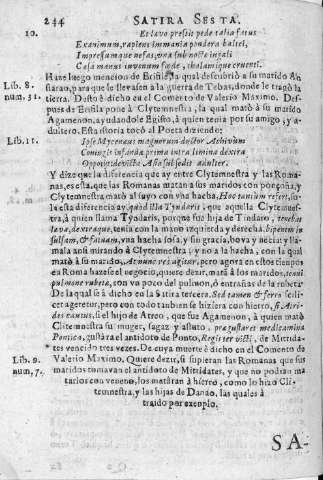 244 SATIRA SESTA.
10. Et lavo pressit pede talia fatus
Exanimum, rapiens immania pondera baltei,
Impressumque nefas, una sub nocte iugali
Cæsa manus iuvenum fœde, thalamique cruenti.
Haze luego mencion de Erifile, la qual descubrió a su marido An
fiarao, para que le llevasen a la guerra de Tebas, donde le tragò la
Lib. 8. num. 31. tierra. Desto è dicho en el Comento de Valerio Maximo. Des-
pues de Erifile pone à Clytemnestra, la qual matò à su marido
Agamenon, ayudandole Egisto, à quien tenia por su amigo, y a-
dultero. Esta istoria tocò al Poeta diziendo:
Lib. 11. Ipse Mycenæus magnorum ductor Achivum
Coniugis infandæ prima intra limina dextra
Oppetiit devicta Asia subsedit adulter.
Y dize que la diferencia que ay entre Clytemnestra, y las Roma-
nas, es esta, que las Romanas matan a sus maridos con ponçoña, y
Clytemnestra matò al suyo con vna hacha. Hoc tantum refert, so-
la esta diferencia ay, quod illa Tyndaris, que aquella Clytemnes-
tra, à quien llama Tyndaris, porque fue hija de Tindaro, tenebat
læva, dextraque, tenia con la mano izquierda y derecha, bipennem in
sulsam, & fatuam, vna hacha sosa, y sin gracia, bova y necia: y lla-
mala ansi mirando à Clytemnestra, y no a la hacha, con la qual
matò à su marido, At nunc res agitur, pero agora en estos tiempos
en Roma hazese el negocio, quiere dezir, matã à los maridos, tenui
pulmone rubetæ, con vn poco del pulmon, ò entrañas de la rubeta.
De la qual è dicho en la Satira tercera. Sed tamen & ferro scili-
cet agetur, pero con todo tambien se hizera con hierro, si Atri-
des cautus, si el hijo de Atreo, que fue Agamenon, à quien matò
Clitemnestra su muger, sagaz y astuto, prægustaret medicamina
Pontica, gustàra el antidoto de Ponto, Regis ter victi, de Mitrida-
tes vencido tres vezes. De cuya muerte è dicho en el Comento de
Lib. 9. num. 7. Valerio Maximo. Quiere dezir, si supieran las Romanas que sus
maridos tomavan el antidoto de Mitridates, y que no podian ma
tarlos con veneno, los matàran à hierro, como lo hizo Cli-
temnestra, y las hijas de Danao, las quales à
traido por exemplo.
SA-